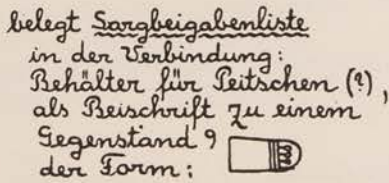 belegt Sargbeigabenliste
in der Verbindung:
Behälter für Peitschen (?),
als Beischrift zu einem
Gegenstand
der Form: